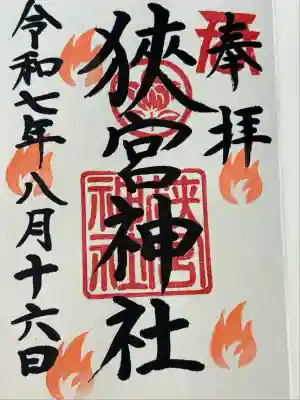 奉拝
狹宮神社
狹宮
神社
令和七年八月十六日